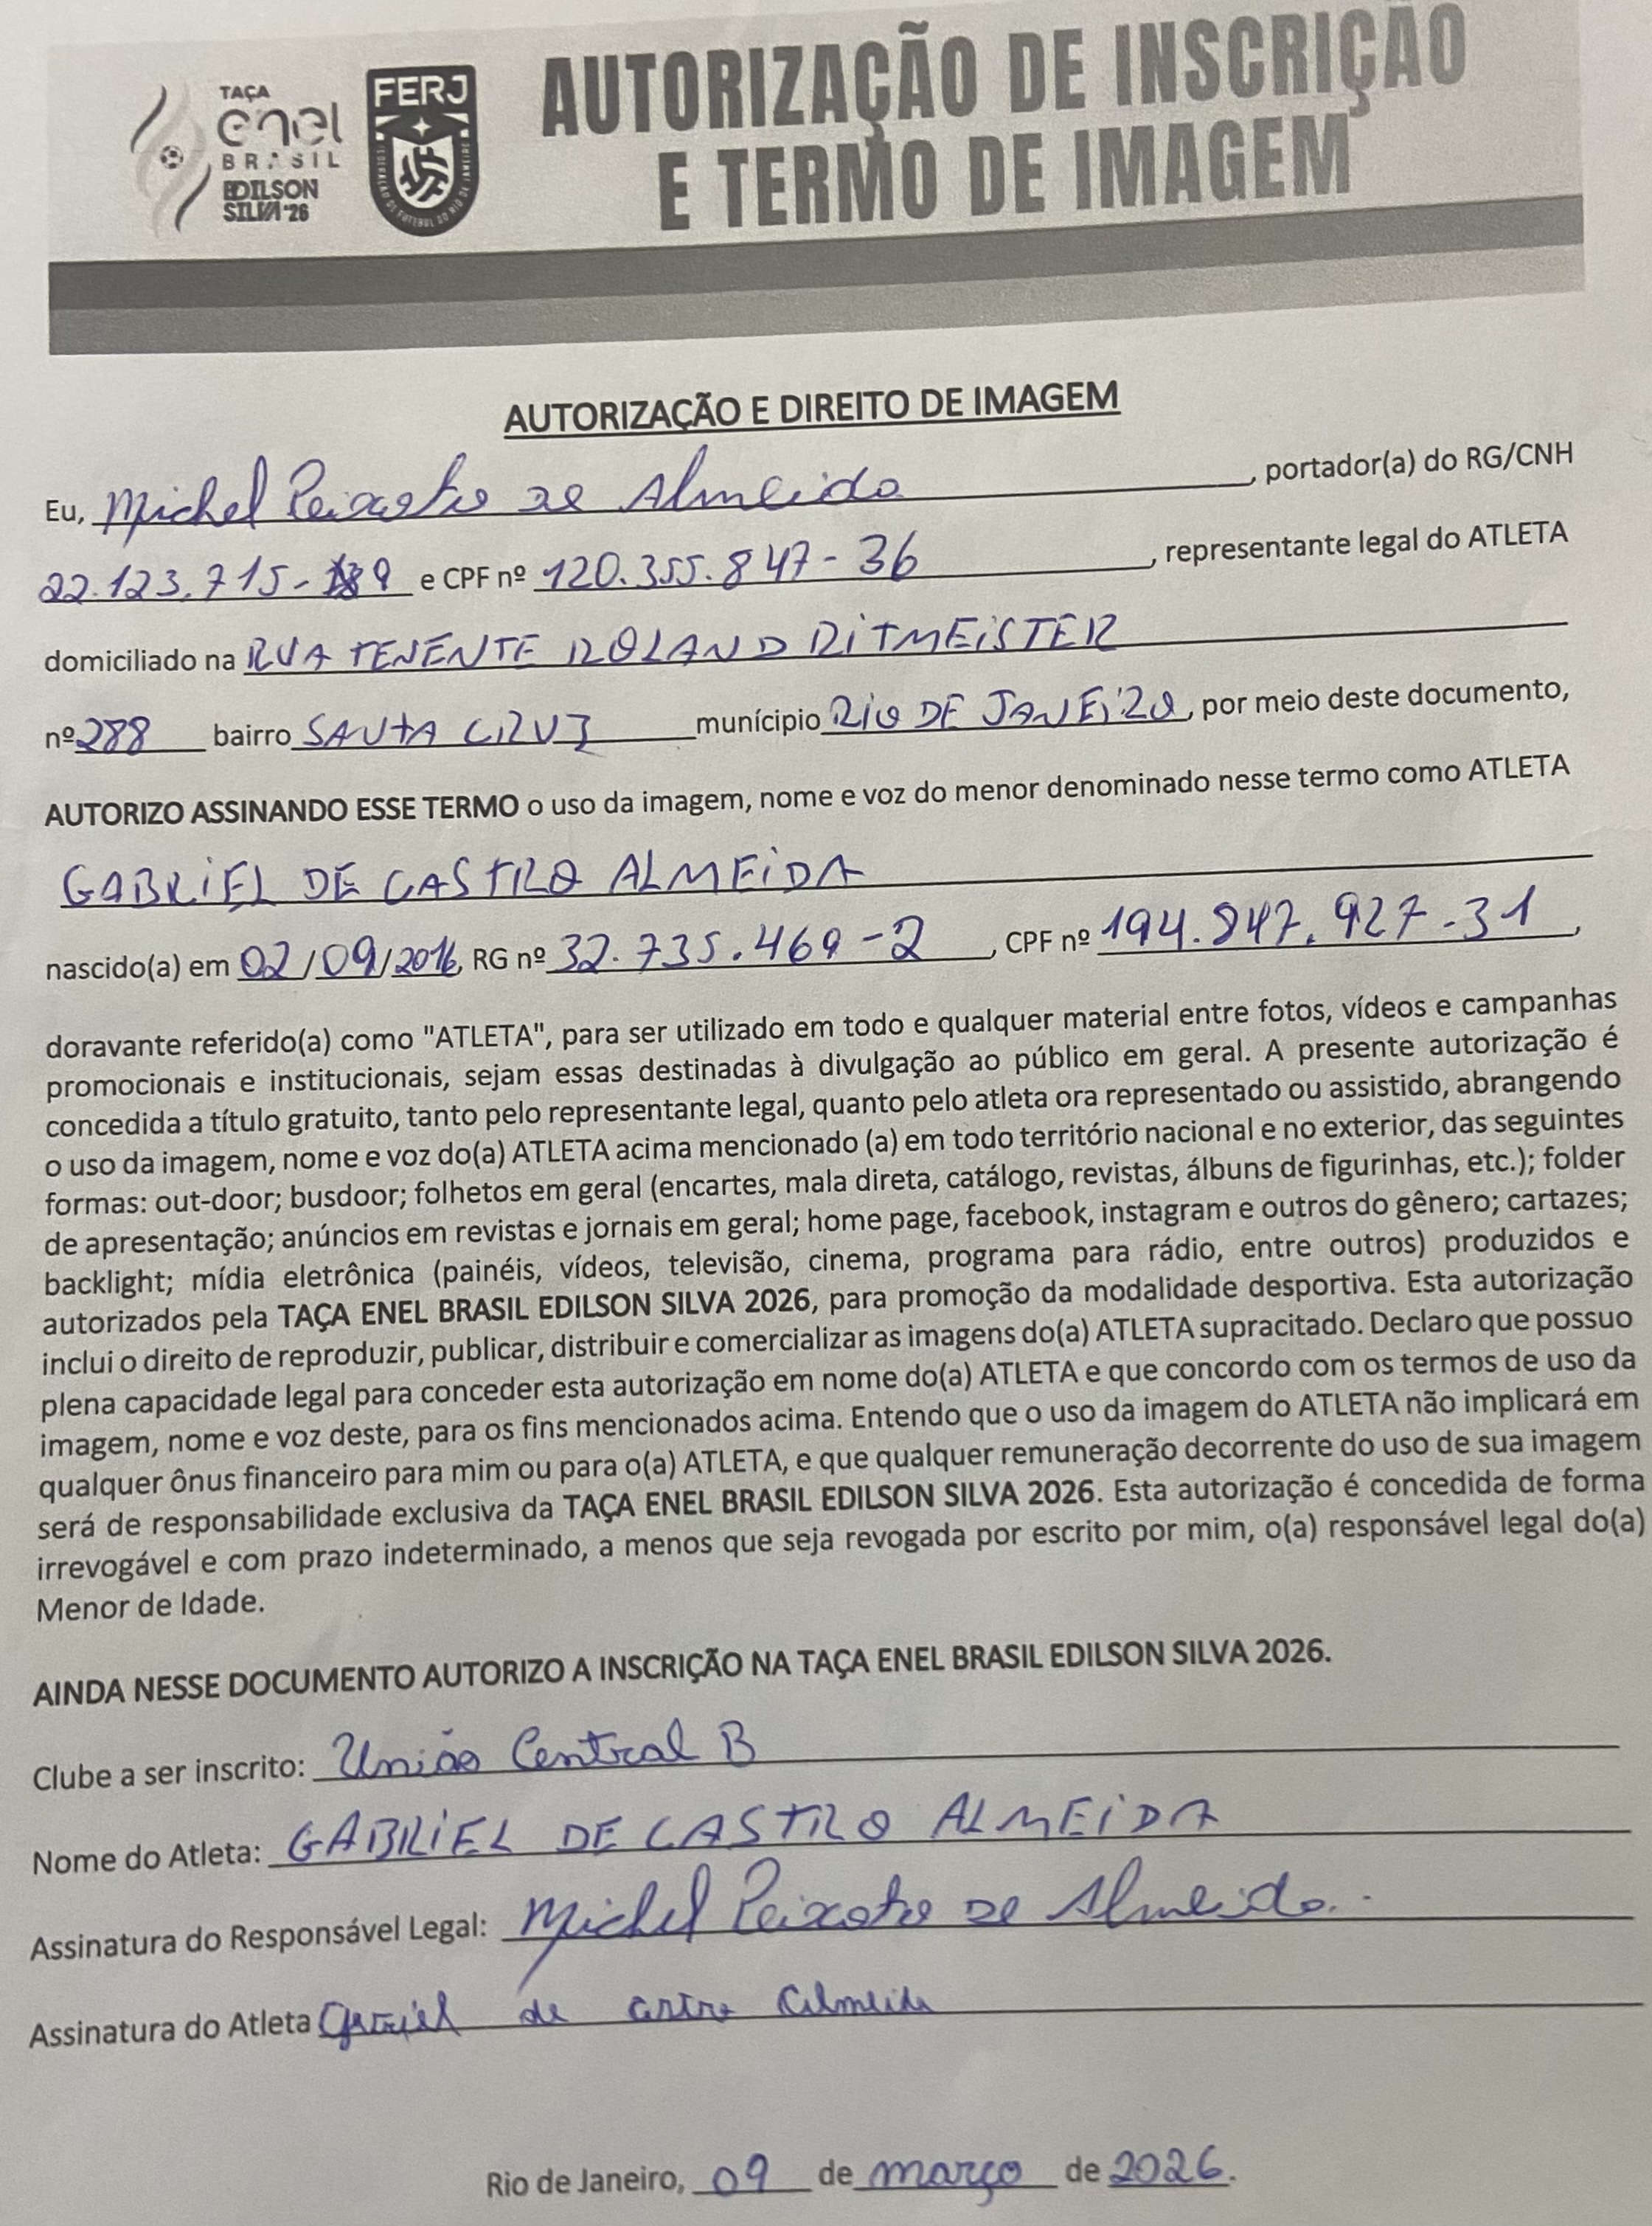 TAÇA
enel
BRASIL
EDILSON
SILVA '26
FERJ
FEDERAÇÃO DE FUTEBOL DO RIO DE JANEIRO
AUTORIZAÇÃO DE INSCRIÇÃO
E TERMO DE IMAGEM
AUTORIZAÇÃO E DIREITO DE IMAGEM
Eu, Michel Peixoto de Almeida, portador(a) do RG/CNH
22.123.715-9 e CPF nº 120.355.847-36, representante legal do ATLETA
domiciliado na RUA TENENTE ROLAND RITMEISTER
nº 288 bairro SANTA CRUZ munícipio RIO DE JANEIRO, por meio deste documento,
AUTORIZO ASSINANDO ESSE TERMO o uso da imagem, nome e voz do menor denominado nesse termo como ATLETA
GABRIEL DE CASTRO ALMEIDA
nascido(a) em 02/09/2016, RG nº 32.735.469-2, CPF nº 194.847.927-31,
doravante referido(a) como "ATLETA", para ser utilizado em todo e qualquer material entre fotos, vídeos e campanhas
promocionais e institucionais, sejam essas destinadas à divulgação ao público em geral. A presente autorização é
concedida a título gratuito, tanto pelo representante legal, quanto pelo atleta ora representado ou assistido, abrangendo
o uso da imagem, nome e voz do(a) ATLETA acima mencionado (a) em todo território nacional e no exterior, das seguintes
formas: out-door; busdoor; folhetos em geral (encartes, mala direta, catálogo, revistas, álbuns de figurinhas, etc.); folder
de apresentação; anúncios em revistas e jornais em geral; home page, facebook, instagram e outros do gênero; cartazes;
backlight; mídia eletrônica (painéis, vídeos, televisão, cinema, programa para rádio, entre outros) produzidos e
autorizados pela TAÇA ENEL BRASIL EDILSON SILVA 2026, para promoção da modalidade desportiva. Esta autorização
inclui o direito de reproduzir, publicar, distribuir e comercializar as imagens do(a) ATLETA supracitado. Declaro que possuo
plena capacidade legal para conceder esta autorização em nome do(a) ATLETA e que concordo com os termos de uso da
imagem, nome e voz deste, para os fins mencionados acima. Entendo que o uso da imagem do ATLETA não implicará em
qualquer ônus financeiro para mim ou para o(a) ATLETA, e que qualquer remuneração decorrente do uso de sua imagem
será de responsabilidade exclusiva da TAÇA ENEL BRASIL EDILSON SILVA 2026. Esta autorização é concedida de forma
irrevogável e com prazo indeterminado, a menos que seja revogada por escrito por mim, o(a) responsável legal do(a)
Menor de Idade.
AINDA NESSE DOCUMENTO AUTORIZO A INSCRIÇÃO NA TAÇA ENEL BRASIL EDILSON SILVA 2026.
Clube a ser inscrito: União Central B
Nome do Atleta: GABRIEL DE CASTRO ALMEIDA
Assinatura do Responsável Legal: Michel Peixoto de Almeida.
Assinatura do Atleta Gabriel de castro Almeida
Rio de Janeiro, 09 de março de 2026.